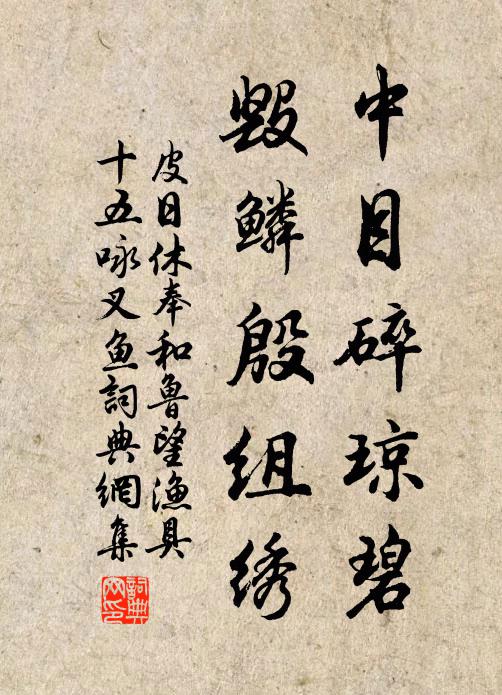 中目碎琼碧
毁鳞殷组绣
皮日休奉和鲁望渔具
十五咏叉鱼詞典網集
詞典
网印